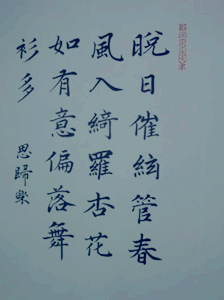 晚日催絃管春
風入綺羅杏花
如有意偏落舞
衫多
思歸樂